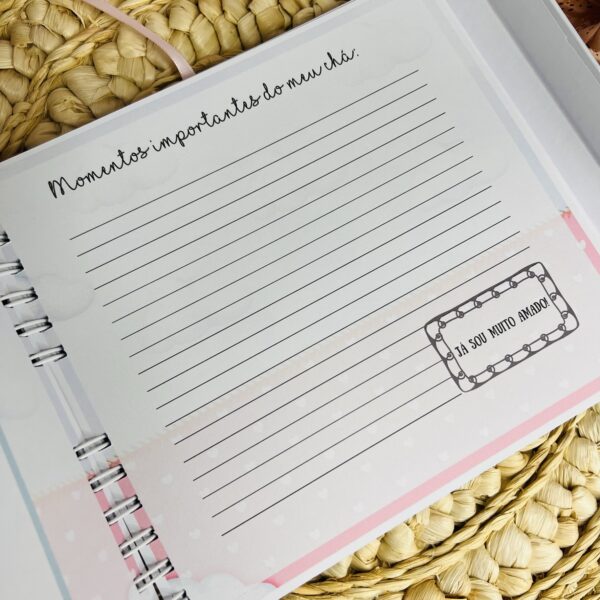 Momentos importantes do meu chá:
JÁ SOU MUITO AMADO!